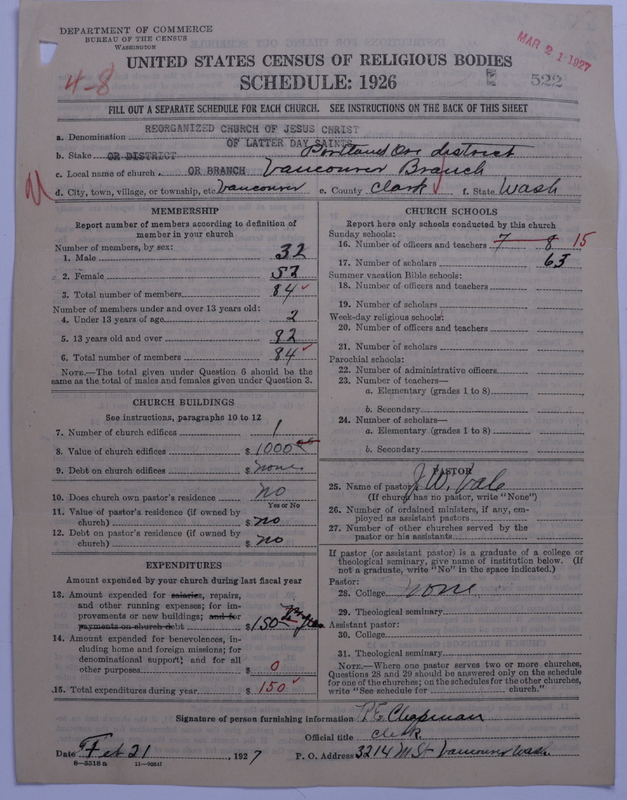 DEPARTMENT OF COMMERCE
BUREAU OF THE CENSUS
WASHINGTON
MAR 21 1927
4-8
UNITED STATES CENSUS OF RELIGIOUS BODIES
SCHEDULE: 1926
522
FILL OUT A SEPARATE SCHEDULE FOR EACH CHURCH. SEE INSTRUCTIONS ON THE BACK OF THIS SHEET
a. Denomination REORGANIZED CHURCH OF JESUS CHRIST
OF LATTER DAY SAINTS
b. Stake OR DISTRICT Portland Ore district
c. Local name of church OR BRANCH Vancouver Branch
d. City, town, village, or township, etc. Vancouver e. County Clark f. State Wash
MEMBERSHIP
Report number of members according to definition of
member in your church
Number of members, by sex:
1. Male 32
2. Female 52
3. Total number of members 84
Number of members under and over 13 years old:
4. Under 13 years of age 2
5. 13 years old and over 82
6. Total number of members 84
NOTE.—The total given under Question 6 should be
same as the total of males and females given under Question 3.
CHURCH BUILDINGS
See instructions, paragraphs 10 to 12
7. Number of church edifices 1
8. Value of church edifices $ 1000
9. Debt on church edifices $ none
10. Does church own pastor's residence no
Yes or No
11. Value of pastor's residence (if owned by
church) $ no
12. Debt on pastor's residence (if owned by
church) $ no
EXPENDITURES
Amount expended by your church during last fiscal year
13. Amount expended for salaries, repairs,
and other running expenses; for im-
provements or new buildings; and for
payments on church debt $ 150
14. Amount expended for benevolences, in-
cluding home and foreign missions; for
denominational support; and for all
other purposes $ 0
15. Total expenditures during year $ 150
CHURCH SCHOOLS
Report here only schools conducted by this church
Sunday schools:
16. Number of officers and teachers 7 8 15
17. Number of scholars 63
Summer vacation Bible schools:
18. Number of officers and teachers
19. Number of scholars
Week-day religious schools:
20. Number of officers and teachers
21. Number of scholars
Parochial schools:
22. Number of administrative officers
23. Number of teachers—
a. Elementary (grades 1 to 8)
b. Secondary
24. Number of scholars—
a. Elementary (grades 1 to 8)
b. Secondary
PASTOR
25. Name of pastor J. W. Vale
(If church has no pastor, write "None")
26. Number of ordained ministers, if any, em-
ployed as assistant pastors
27. Number of other churches served by the
pastor or his assistants
If pastor (or assistant pastor) is a graduate of a college or
theological seminary, give name of institution below. (If
not a graduate, write "No" in the space indicated.)
Pastor:
28. College none
29. Theological seminary
Assistant pastor:
30. College
31. Theological seminary
NOTE.—Where one pastor serves two or more churches,
Questions 28 and 29 should be answered only on the schedule
for one of the churches; on the schedules for the other churches,
write "See schedule for church."
Signature of person furnishing information R E Chapman
Official title clerk
Date Feb 21, 1927 P. O. Address 3214 M St Vancouver Wash.
8-5518 a